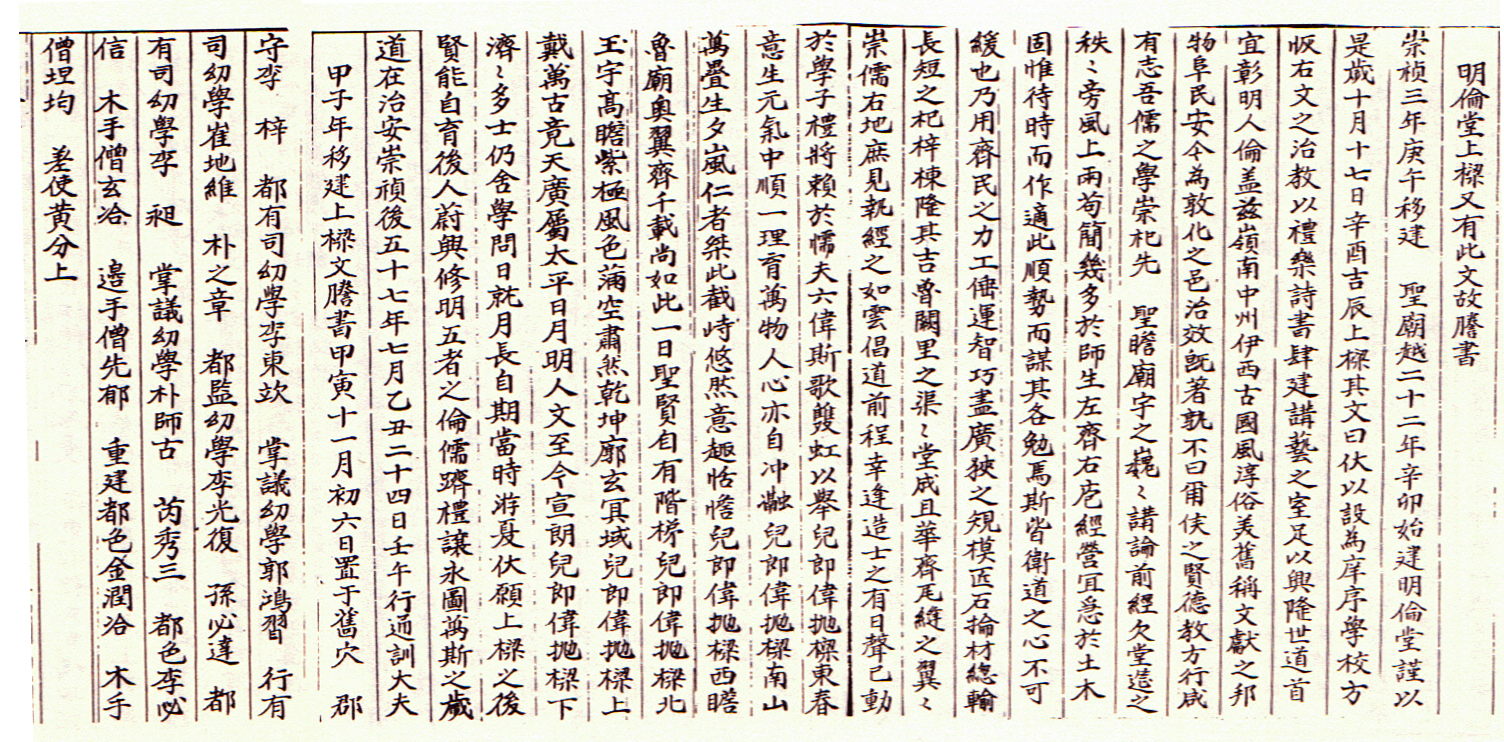 明倫堂上樑又有此文故謄書
崇禎三年庚午移建　聖廟越二十二年辛卯始建明倫堂謹以
是歲十月十七日辛酉吉辰上樑其文曰伏以設為庠序學校方
恢右文之治教以禮樂詩書肆建講藝之室足以興隆世道首
宜彰明人倫盖兹嶺南中州伊西古國風淳俗美舊稱文獻之邦
物阜民安今為敦化之邑治效既著孰不曰爾侯之賢德教方行咸
有志吾儒之學崇杞先　聖瞻廟宇之巍〻講論前經欠堂筵之
秩〻旁風上雨苟簡幾多於師生左齊右庖經營宜急於土木
固惟待時而作適此順勢而謀其各勉焉斯皆衛道之心不可
緩也乃用齊民之力工僝運智巧盡廣狹之規模匠石掄材總輸
長短之杞梓棟隆其吉魯闕里之渠〻堂成且華齊瓦縫之翼〻
崇儒右地庶見執經之如雲倡道前程幸逢造士之有日聲已動
於學子禮將賴於懦夫六偉斯歌雙虹以舉兒郎偉抛樑東春
意生元氣中順一理育萬物人心亦自冲瀜兒郎偉抛樑南山
萬疊生夕嵐仁者桀此截峙悠然意趣恬憺兒郎偉抛樑西瞻
魯廟奥翼齊千載尚如此一日聖賢自有階梯兒郎偉抛樑北
玉宇高瞻紫極風色滿空肅然乾坤廓玄冥域兒郎偉抛樑上
戴萬古竟天廣屬太平日月明人文至今宣朗兒郎偉抛樑下
濟〻多士仍舍學問日就月長自期當時游夏伏願上樑之後
賢能自育後人蔚興修明五者之倫儒躋禮讓永圖萬斯之歲
道在治安崇禎後五十七年七月乙丑二十四日壬午行通訓大夫
甲子年移建上樑文謄書甲寅十一月初六日置于舊穴　郡
守李　梓　都有司幼學李東欽　掌議幼學郭鴻習　行有
司幼學崔地維　朴之章　都監幼學李光復　孫必達　都
有司幼學李　昶　掌議幼學朴師古　芮秀三　都色李必
信　木手僧玄洽　邊手僧先郁　重建都色金潤洽　木手
僧坦均　差使黄分上